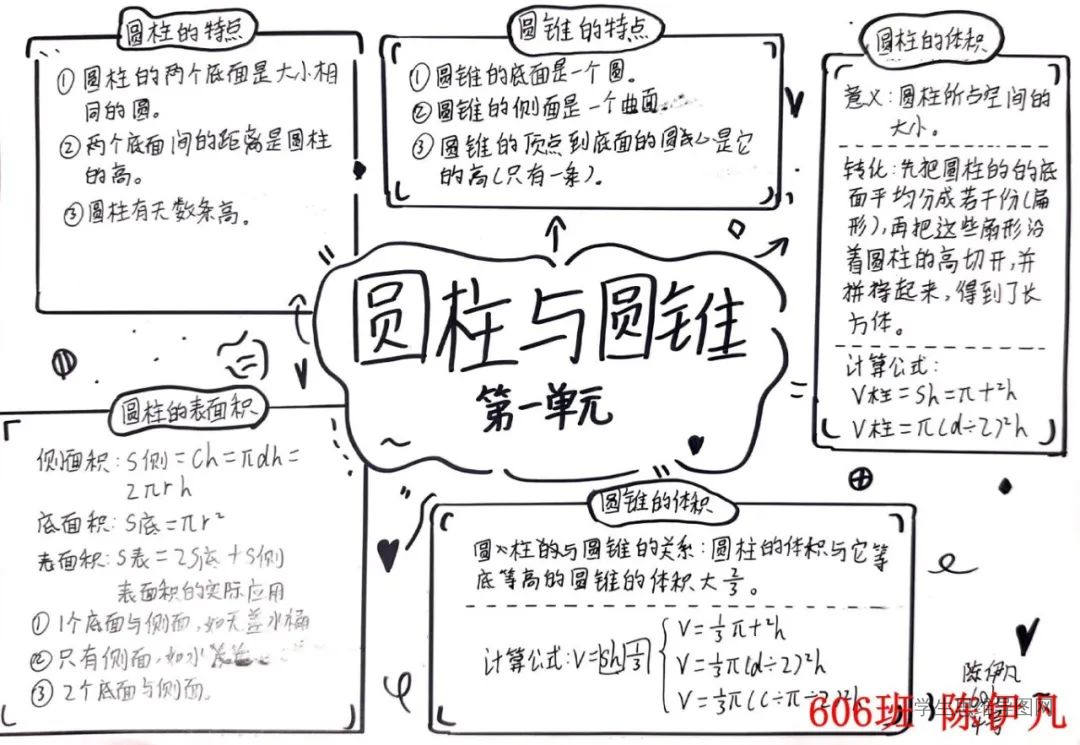 圆柱的特点
①圆柱的两个底面是大小相
同的圆。
②两个底面间的距离是圆柱
的高。
③圆柱有无数条高。
圆锥的特点
①圆锥的底面是一个圆。
②圆锥的侧面是一个曲面
③圆锥的顶点到底面的圆心是它
的高(只有一条)。
圆柱的体积
意义:圆柱所占空间的
大小。
转化:先把圆柱的的底
面平均分成若干份(扇
形),再把这些扇形沿
着圆柱的高切开,并
拼接起来,得到了长
方体。
计算公式:
V柱=Sh=πr²h
V柱=π(d÷2)²h
圆柱与圆锥
第一单元
圆柱的表面积
侧面积:S侧=Ch=πdh=
2πrh
底面积:S底=πr²
表面积:S表=2S底+S侧
表面积的实际应用
①1个底面与侧面,如无盖水桶
②只有侧面,如水
③2个底面与侧面。
圆锥的体积
圆柱的与圆锥的关系:圆柱的体积与它等
底等高的圆锥的体积大2/3。
计算公式:V=Sh1/3
V=1/3πr²h
V=1/3π(d÷2)²h
V=1/3π(C÷π÷2)²
陈伊凡
606班 陈伊凡
学生思维导图网